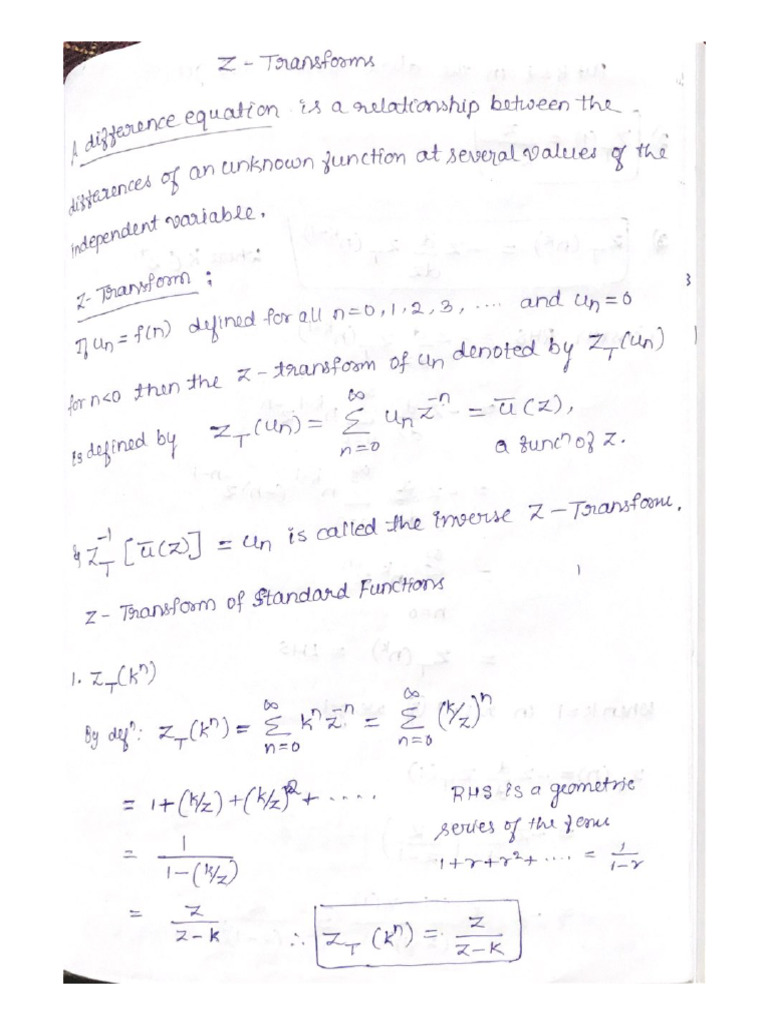 Z - Transforms
A difference equation is a relationship between the
differences of an unknown function at several values of the
independent variable.
Z-Transform :
If uₙ = f(n) defined for all n=0,1,2,3, .... and uₙ=0
for n<0 then the Z-transform of uₙ denoted by Z_T(uₙ)
is defined by Z_T(uₙ) = ∑_{n=0}^{∞} uₙ z⁻ⁿ = ū(z),
a funcⁿ of z.
& Z_T⁻¹ [ū(z)] = uₙ is called the inverse Z-Transform.
Z - Transform of Standard Functions
1. Z_T(kⁿ)
By defⁿ: Z_T(kⁿ) = ∑_{n=0}^{∞} kⁿ z⁻ⁿ = ∑_{n=0}^{∞} (k/z)ⁿ
= 1+(k/z)+(k/z)²+ ....
RHS is a geometric
series of the form
1+r+r²+ .... = 1/(1-r)
= 1/(1-(k/z))
= z/(z-k) ∴ Z_T(kⁿ) = z/(z-k)